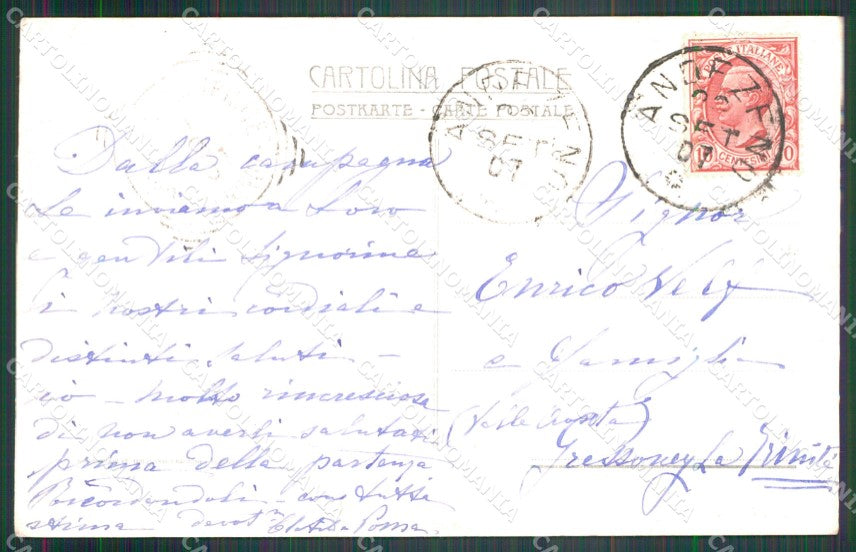 CARTOLINA POSTALE
POSTKARTE - CARTE POSTALE
POSTE ITALIANE
10 CENTESIMI 10
ANDEZENO
SET
07
ANDEZENO
SET
07
Dalla campagna
Le inviamo a Loro
e gentili Signorine
i nostri cordiali e
distinti saluti -
io - molto rincresciosa
di non averli salutati
prima della partenza
Ricordandoli - con tutta
stima devot.
Signor
Enrico
e Famiglia
(Valle Aosta)
Gressoney La Trinité
CARTOLINOMANIA